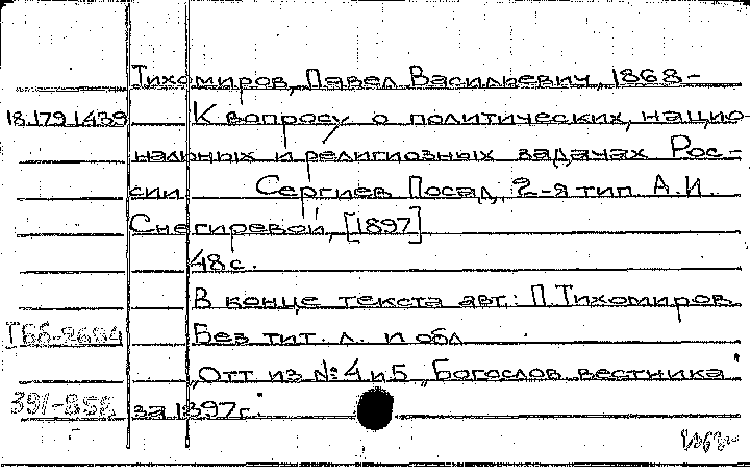 Тихомиров, Павел Васильевич, 1868-
18.179.1439 К вопросу о политических, нацио-
нальных и религиозных задачах Рос-
сии. Сергиев Посад, 2-я тип. А.И.
Снегиревой, [1897]
48 с.
В конце текста авт.: П. Тихомиров
Без тит. л. и обл.
"Отт. из № 4 и 5 „Богослов. вестника"
за 1897 г."